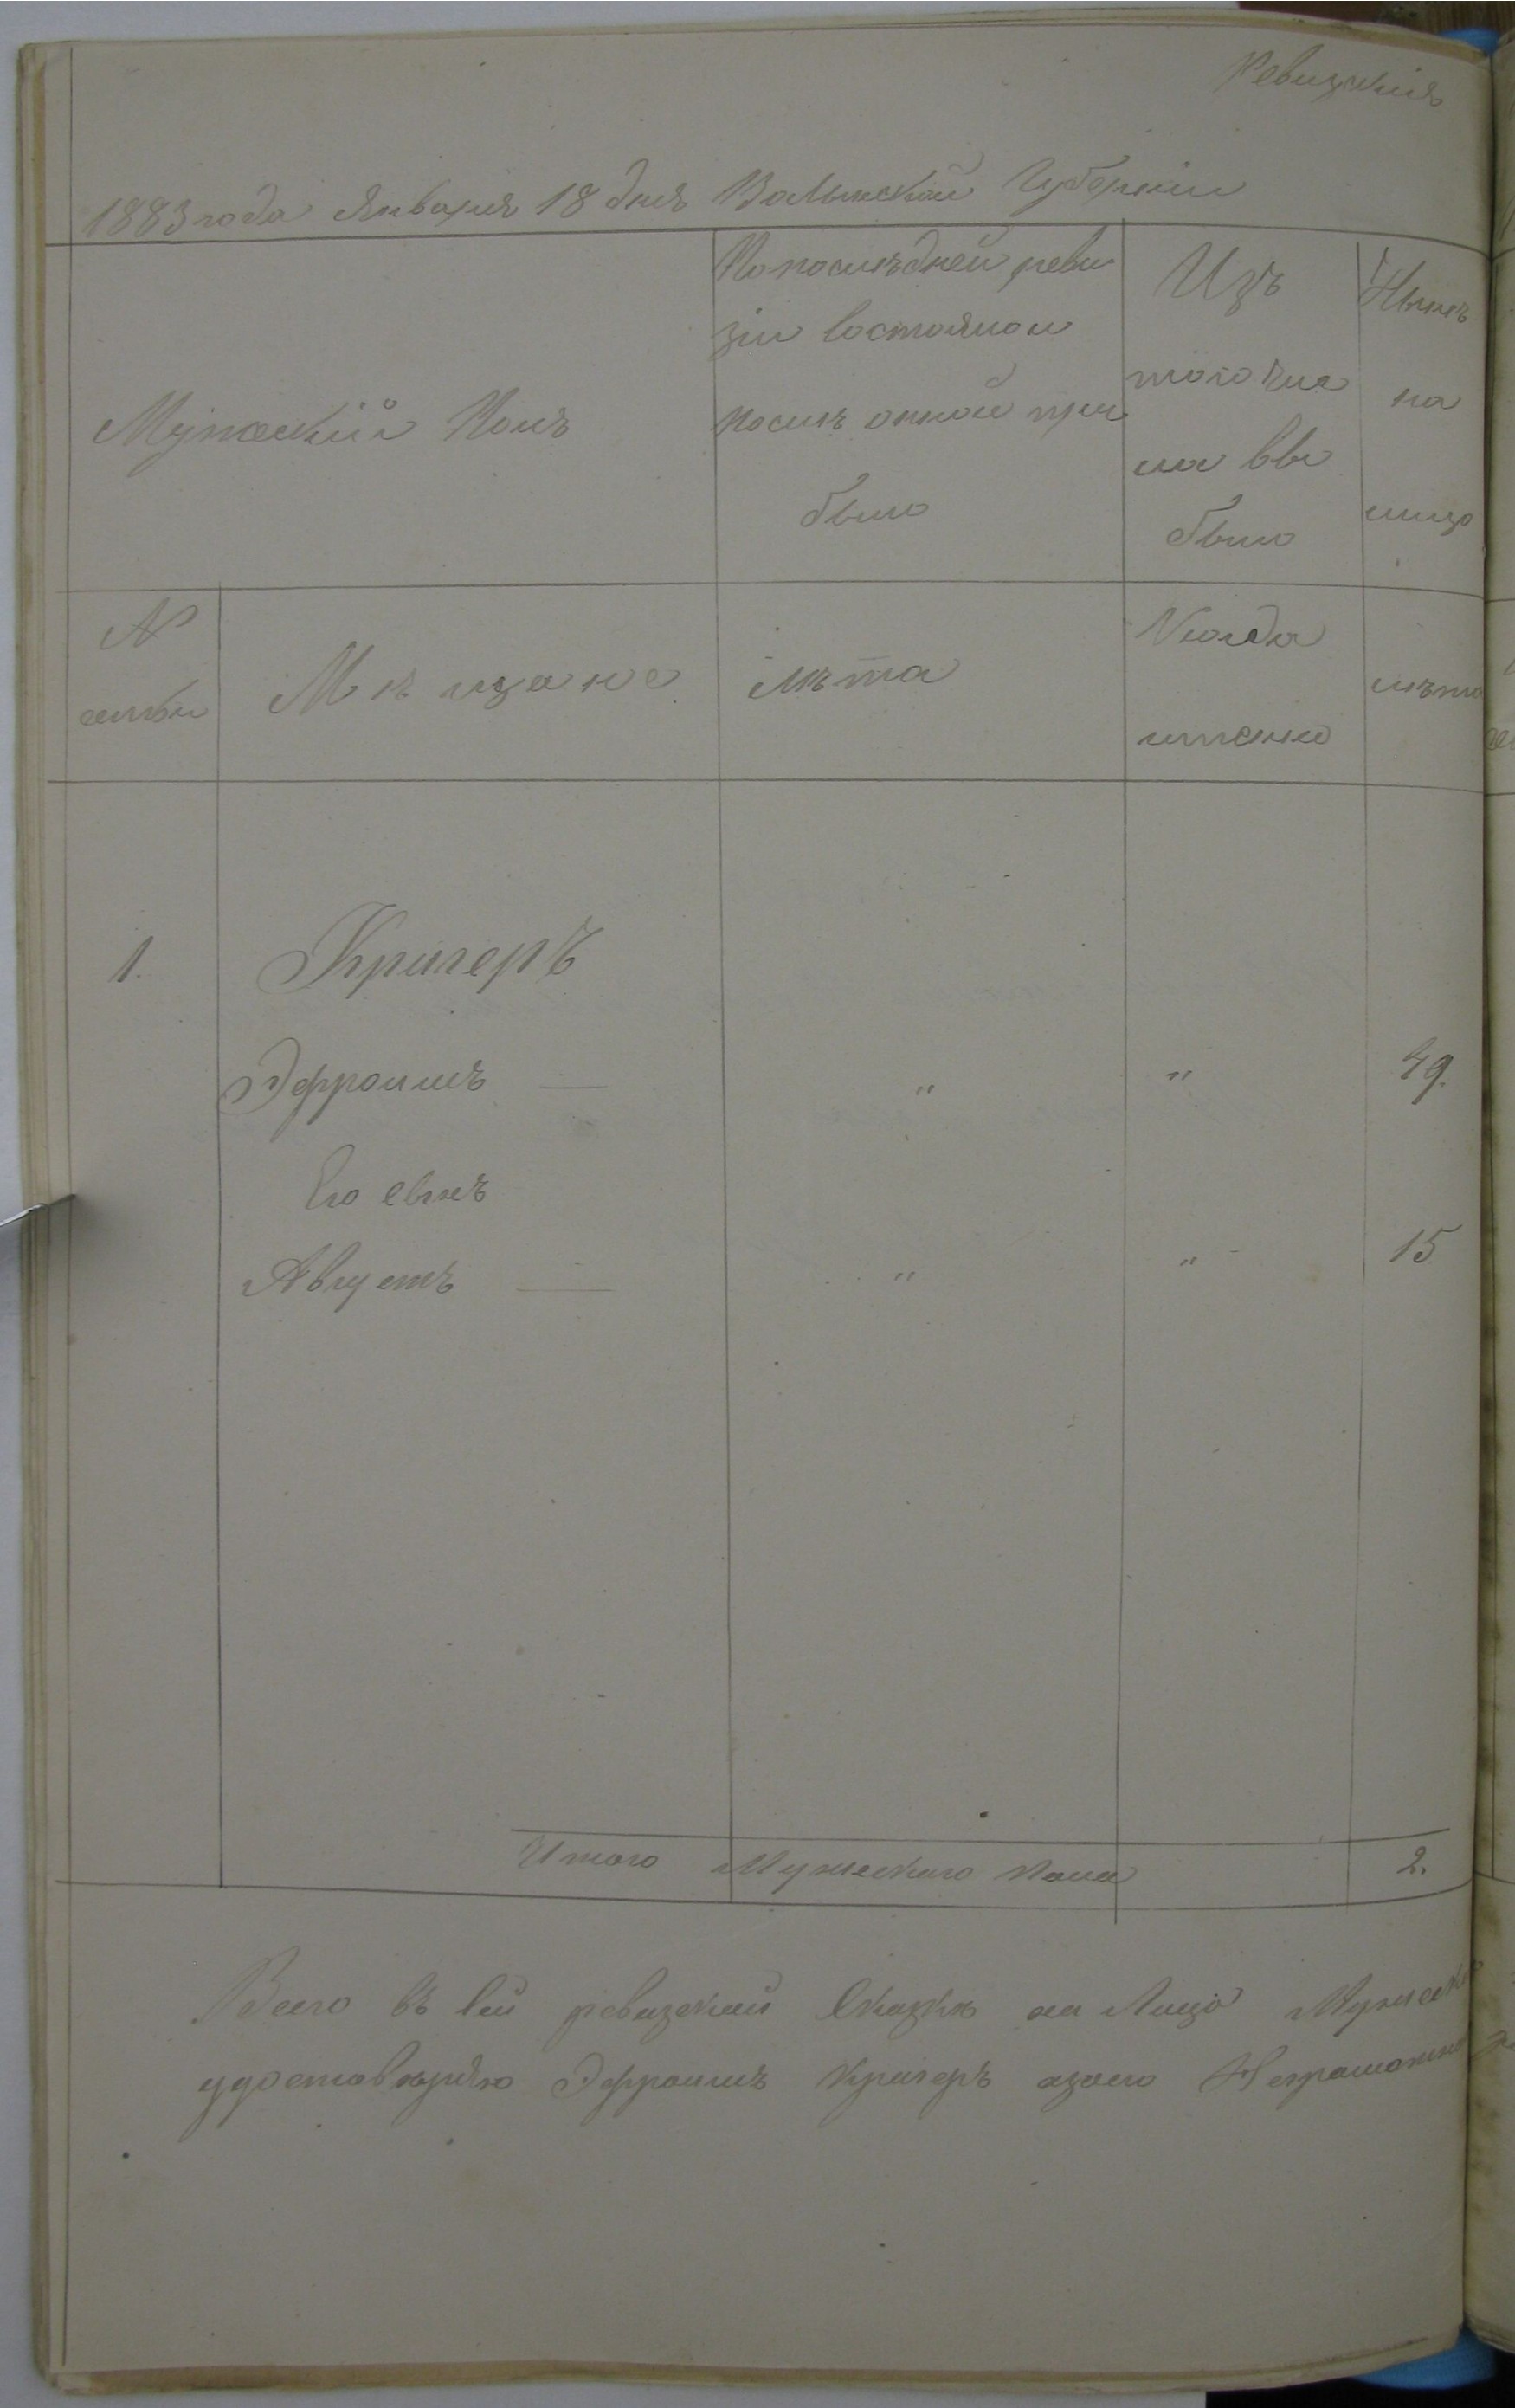 Ревизскія
1883 года Января 18 дня Волынской Губерніи
Мужескій Полъ
Попослѣдней реви
зіи состояло и
послѣ оной при
было
Изъ
того чис
ла вы
было
Нынѣ
на
лицо
№
семьи
Мѣщане
лѣта
Когда
именно
лѣта
1. Кригеръ
Эфроимъ — " " 49.
Его сынъ
Августъ — " " 15
Итого Мужескаго пола 2.
Всего въ сей ревизской Сказкѣ на Лицо Мужеска
удостовѣряю Эфроимъ Кригеръ азаего Неграмотно